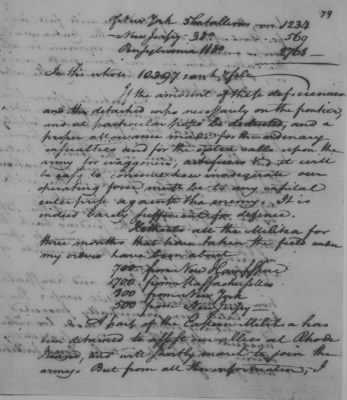 79
of New York 5 battalions 1234
New Jersey 3 do 569
Pennsylvania 11 do 2768
In the whole 10397 rank & file
If the amount of these deficiencies
and the detached corps necessarily on the frontier,
and at particular posts be deducted, and a
proper allowance made for the ordinary
casualties and for the extra calls upon the
army for waggoners, artificers &c. it will
be easy to conceive how inadequate our
operating force must be to any capital
enterprise against the enemy. It is
indeed barely sufficient for defence.
Hitherto all the Militia for
three months that have taken the field under
my orders have been about
700 from New Hampshire
1700 from Massachusetts
500 from New York
from New Jersey
A part of the Eastern Militia has
been detained to assist our allies at Rhode
Island, and will shortly march to join the
army. But from all the information, I